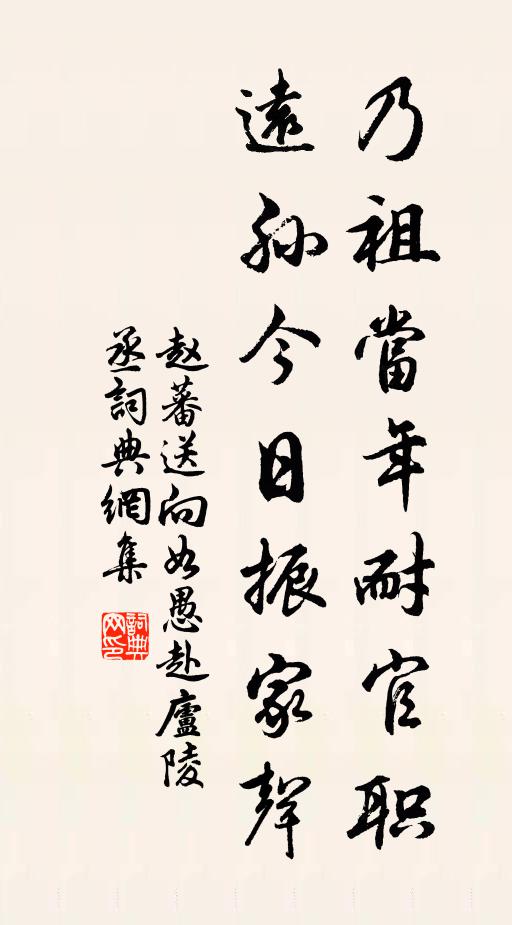 乃祖當年耐官职
遠孙今日振家聲
赵蕃送向如愚赴廬陵
丞詞典網集
詞典
网印